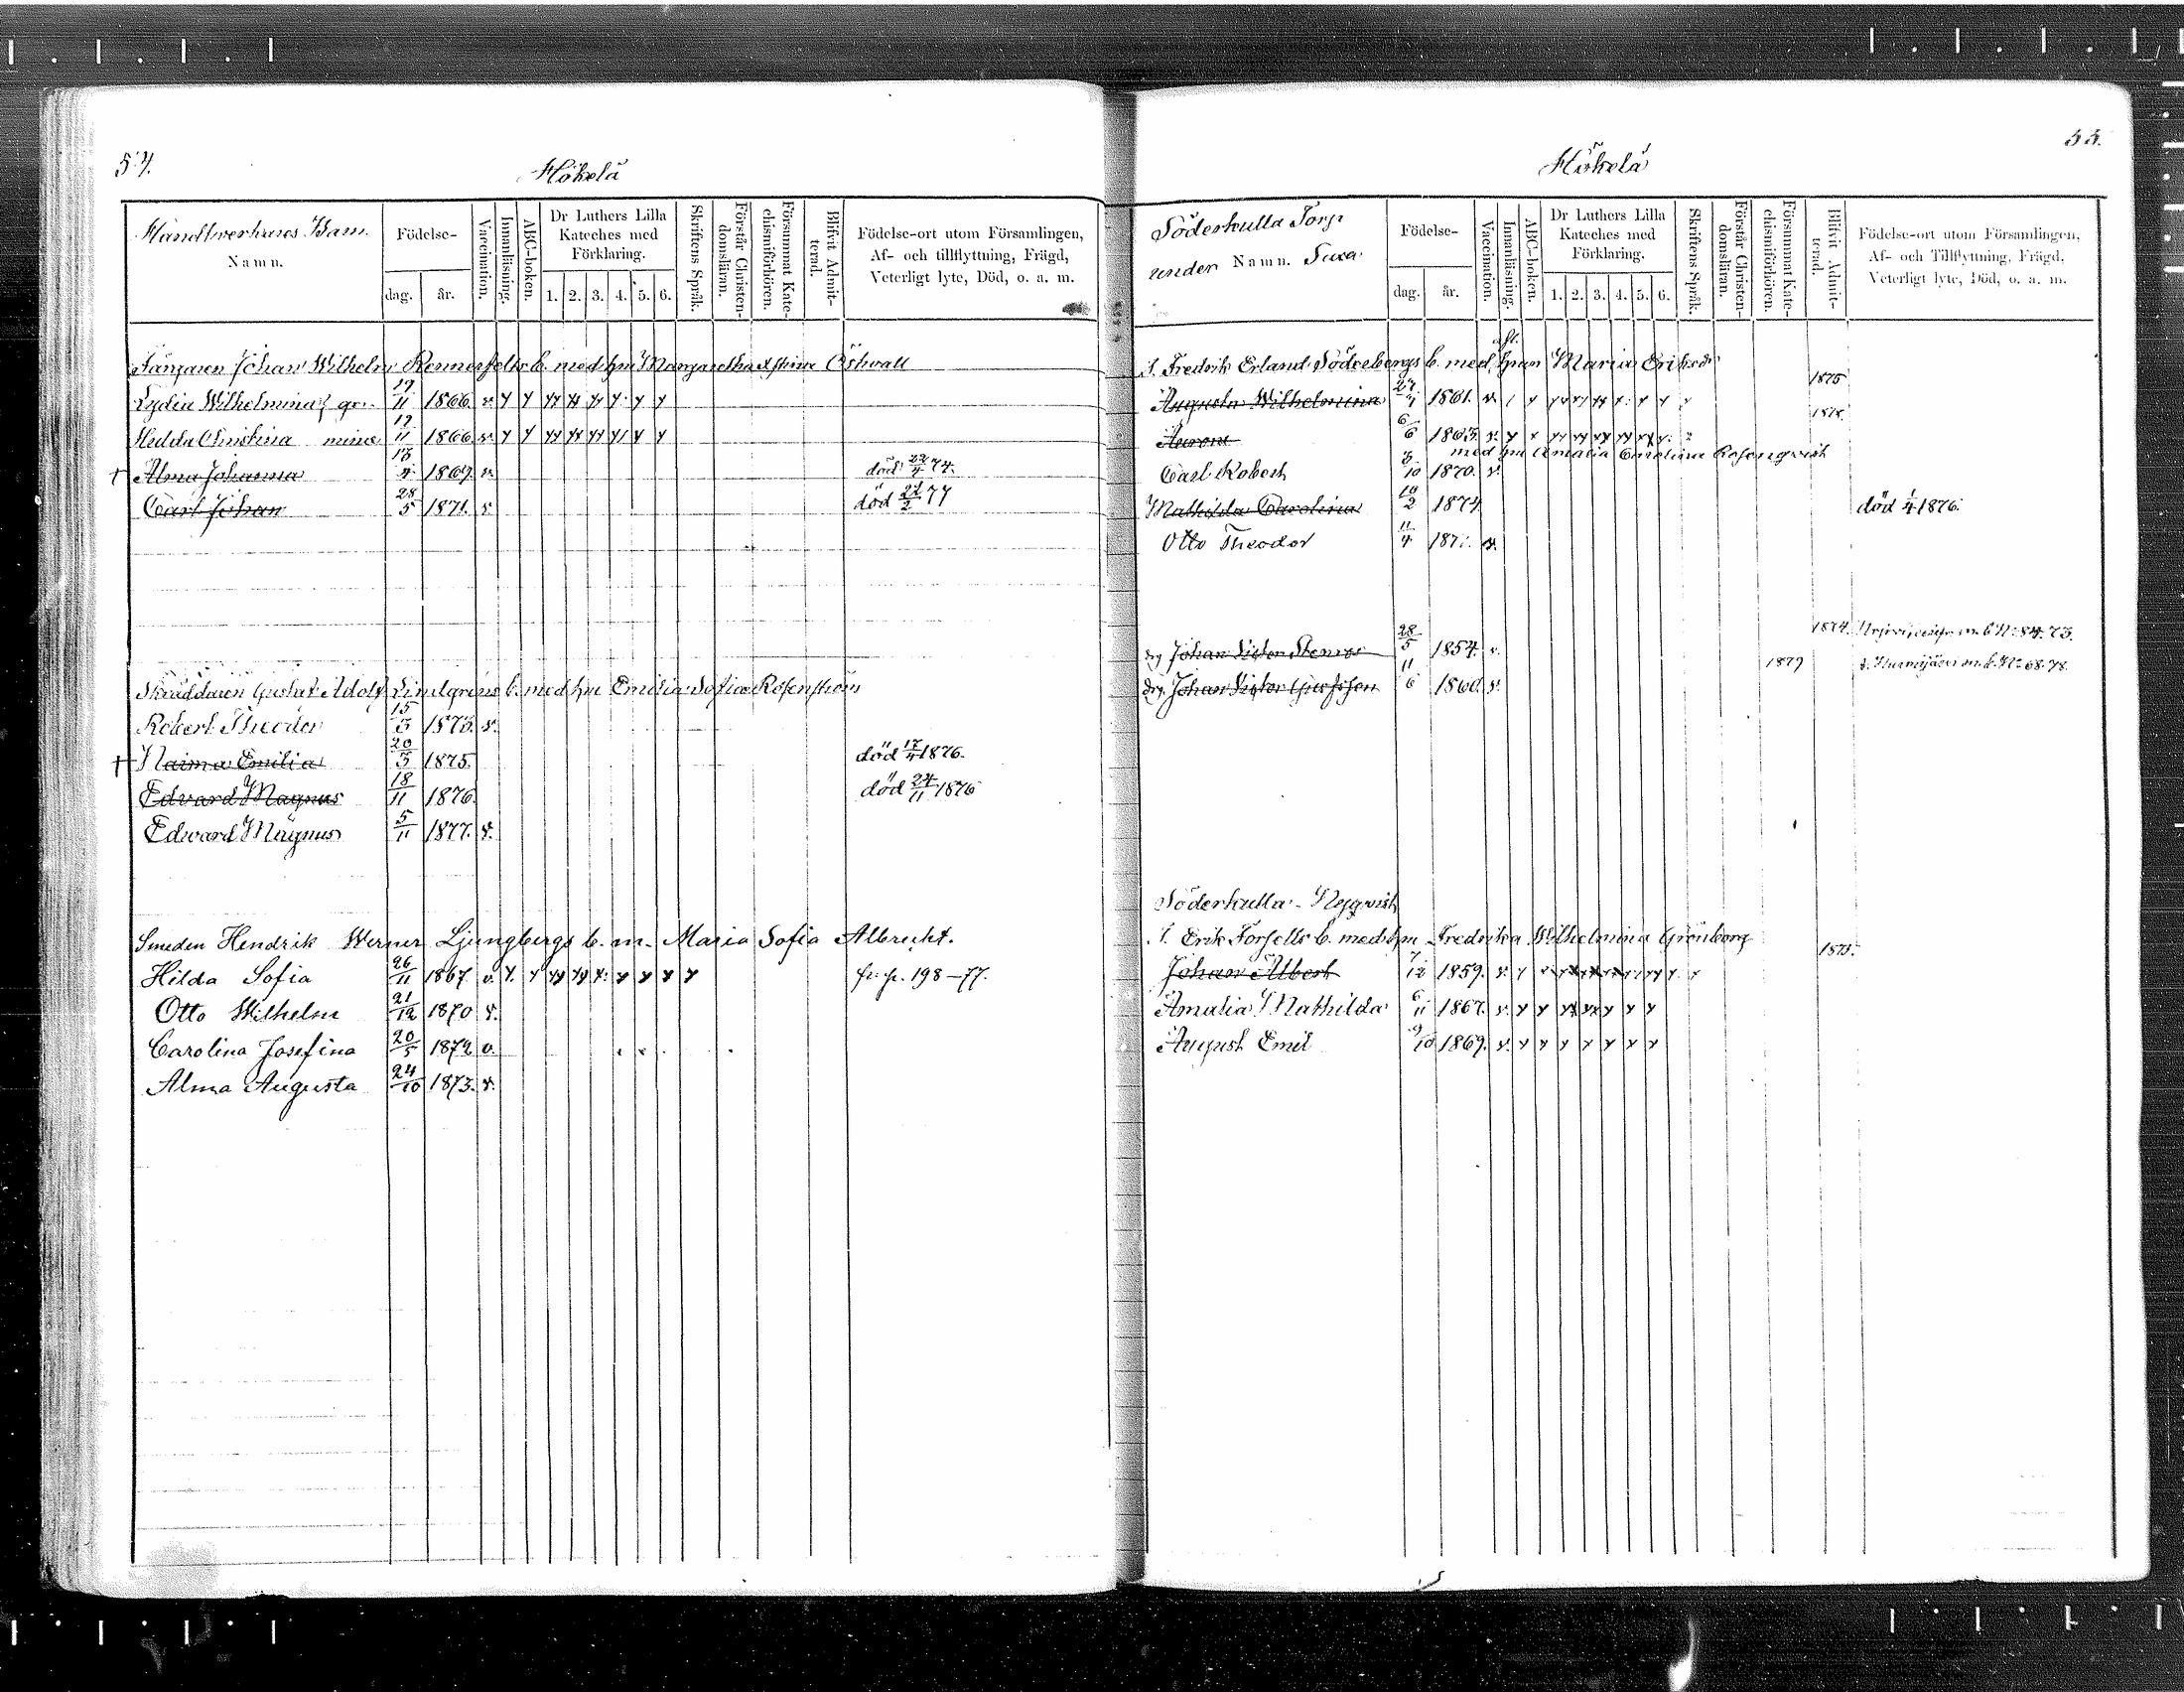 54.
Hökelä
Handtverkares Barn.
Namn.
Födelse-
dag.
år.
Vaccination.
Innanläsning.
ABC-boken.
Dr Luthers Lilla Kateches med Förklaring.
1. 2. 3. 4. 5. 6.
Skriftens Språk.
Förstår Christendomsläran.
Försummat Katechismiförhören.
Blifvit Admitterad.
Födelse-ort utom Församlingen, Af- och tillflyttning, Frägd, Veterligt lyte, Död, o. a. m.
Johan Wilhelm b. med hu Margaretha Östwall
Lydia Wilhelmina 17/11 1866. v.
Hedda Christina 17/11 1866 v.
† Alma Johanna 1869. v. död 74.
Carl Johan 28/5 1871. v. död 22/2 77
Skräddaren Gustaf Adolf Lindgrens b. med hu Emilia Sofia Rosenström
Robert Theodor 15/3 1873. v.
† Naima Emilia 20/3 1875. död 17/4 1876.
Edvard Magnus 18/11 1876. död 24/11 1876
Edvard Magnus 5/11 1877. v.
Smeden Hendrik Werner Ljungbergs b. m. Maria Sofia Albrecht.
Hilda Sofia 26/11 1867 v. fr. p. 198-77.
Otto Wilhelm 21/12 1870 v.
Carolina Josefina 20/5 1872 v.
Alma Augusta 24/10 1873. v.
55.
Hökelä
Söderkulla Torp
under Namn.
Födelse-
dag.
år.
Vaccination.
Innanläsning.
ABC-boken.
Dr Luthers Lilla Kateches med Förklaring.
1. 2. 3. 4. 5. 6.
Skriftens Språk.
Förstår Christendomsläran.
Försummat Katechismiförhören.
Blifvit Admitterad.
Födelse-ort utom Församlingen, Af- och Tillflyttning, Frägd, Veterligt lyte, Död, o. a. m.
Fredrik Erland Söderbergs b. med Maria Eriksdr
Augusta Wilhelmina 1861. v. 1875
Aurora 6/6 1863. v.
med hu Amalia Carolina Rosenqvist
Carl Robert 3/10 1870. v.
Mathilda Carolina 10/2 1874. död 1/4 1876.
Otto Theodor 11/4 v.
Johan Victor 28/5 1854. v. 1874. 84. 73.
Johan Victor 11/6 1860. v. 1879 68. 78.
Söderkulla - Nyqvist
Erik Forsells b. med hu Fredrika Wilhelmina Grönborg
Johan Albert 7/12 1859. v.
Amalia Mathilda 6/11 1867. v.
August Emil 9/10 1869. v.